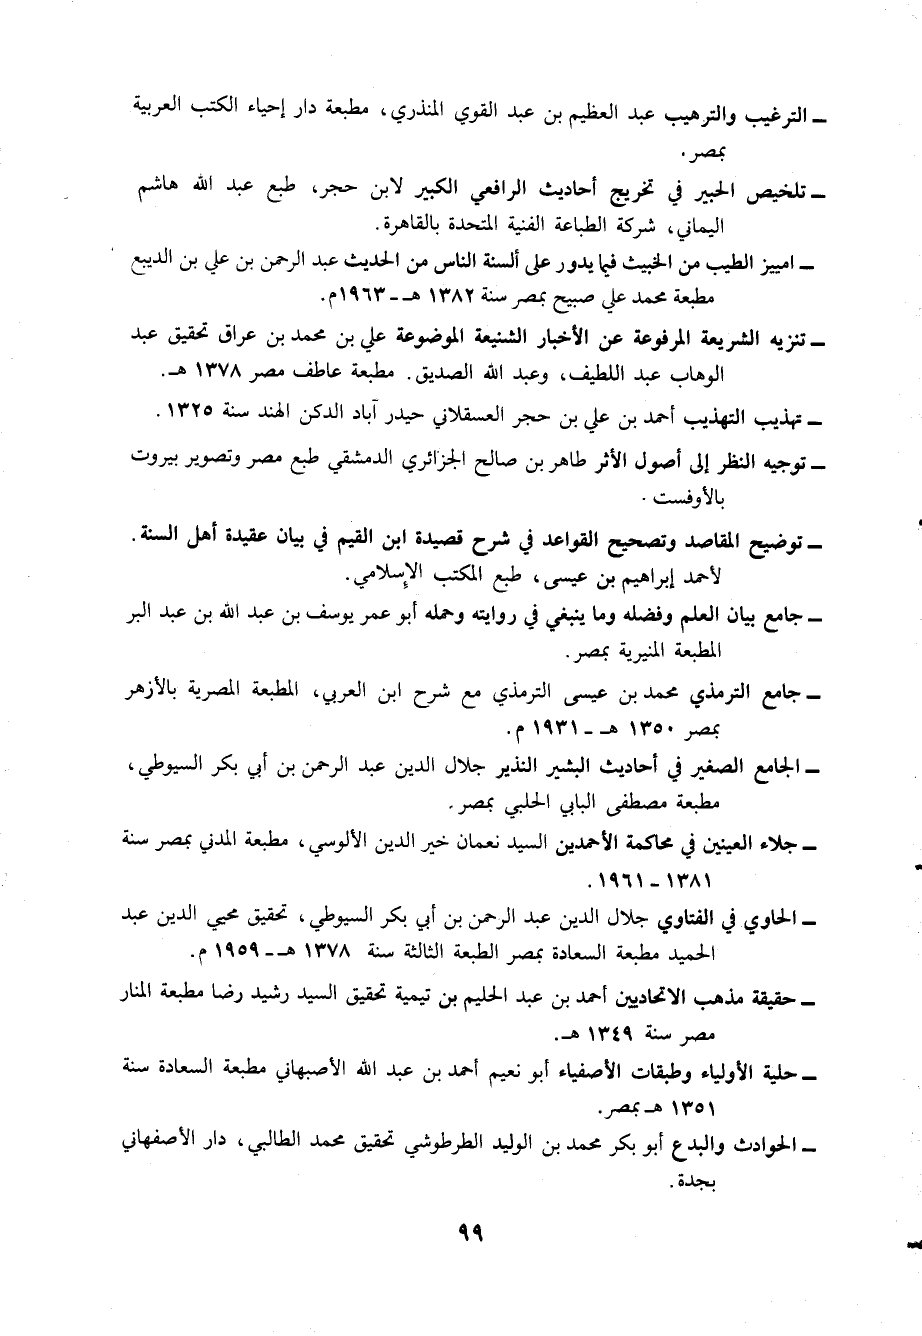 ــ الترغيب والترهيب عبد العظيم بن عبد القوي المنذري، مطبعة دار إحياء الكتب العربية
بمصر.
ــ تلخيص الحبير في تخريج أحاديث الرافعي الكبير لابن حجر، طبع عبد الله هاشم
اليماني، شركة الطباعة الفنية المتحدة بالقاهرة.
ــ امييز الطيب من الخبيث فيما يدور على ألسنة الناس من الحديث عبد الرحمن بن علي بن الديبع
مطبعة محمد علي صبيح بمصر سنة ١٣٨٢ هـ ــ ١٩٦٣م.
ــ تنزيه الشريعة المرفوعة عن الأخبار الشنيعة الموضوعة علي بن محمد بن عراق تحقيق عبد
الوهاب عبد اللطيف، وعبد الله الصديق. مطبعة عاطف مصر ١٣٧٨ هـ.
ــ تهذيب التهذيب أحمد بن علي بن حجر العسقلاني حيدر آباد الدكن الهند سنة ١٣٢٥.
ــ توجيه النظر إلى أصول الأثر طاهر بن صالح الجزائري الدمشقي طبع مصر وتصوير بيروت
بالأوفست.
ــ توضيح المقاصد وتصحيح القواعد في شرح قصيدة ابن القيم في بيان عقيدة أهل السنة.
لأحمد إبراهيم بن عيسى، طبع المكتب الإسلامي.
ــ جامع بيان العلم وفضله وما ينبغي في روايته وحمله أبو عمر يوسف بن عبد الله بن عبد البر
المطبعة المنيرية بمصر.
ــ جامع الترمذي محمد بن عيسى الترمذي مع شرح ابن العربي، المطبعة المصرية بالأزهر
بمصر ١٣٥٠ هـ ــ ١٩٣١ م.
ــ الجامع الصغير في أحاديث البشير النذير جلال الدين عبد الرحمن بن أبي بكر السيوطي،
مطبعة مصطفى البابي الحلبي بمصر.
ــ جلاء العينين في محاكمة الأحمدين السيد نعمان خير الدين الألوسي، مطبعة المدني بمصر سنة
١٣٨١ ــ ١٩٦١.
ــ الحاوي في الفتاوي جلال الدين عبد الرحمن بن أبي بكر السيوطي، تحقيق محيي الدين عبد
الحميد مطبعة السعادة بمصر الطبعة الثالثة سنة ١٣٧٨ هـ ــ ١٩٥٩ م.
ــ حقيقة مذهب الاتحاديين أحمد بن عبد الحليم بن تيمية تحقيق السيد رشيد رضا مطبعة المنار
مصر سنة ١٣٤٩ هـ.
ــ حلية الأولياء وطبقات الأصفياء أبو نعيم أحمد بن عبد الله الأصبهاني مطبعة السعادة سنة
١٣٥١ هـ بمصر.
ــ الحوادث والبدع أبو بكر محمد بن الوليد الطرطوشي تحقيق محمد الطالبي، دار الأصفهاني
بجدة.
٩٩